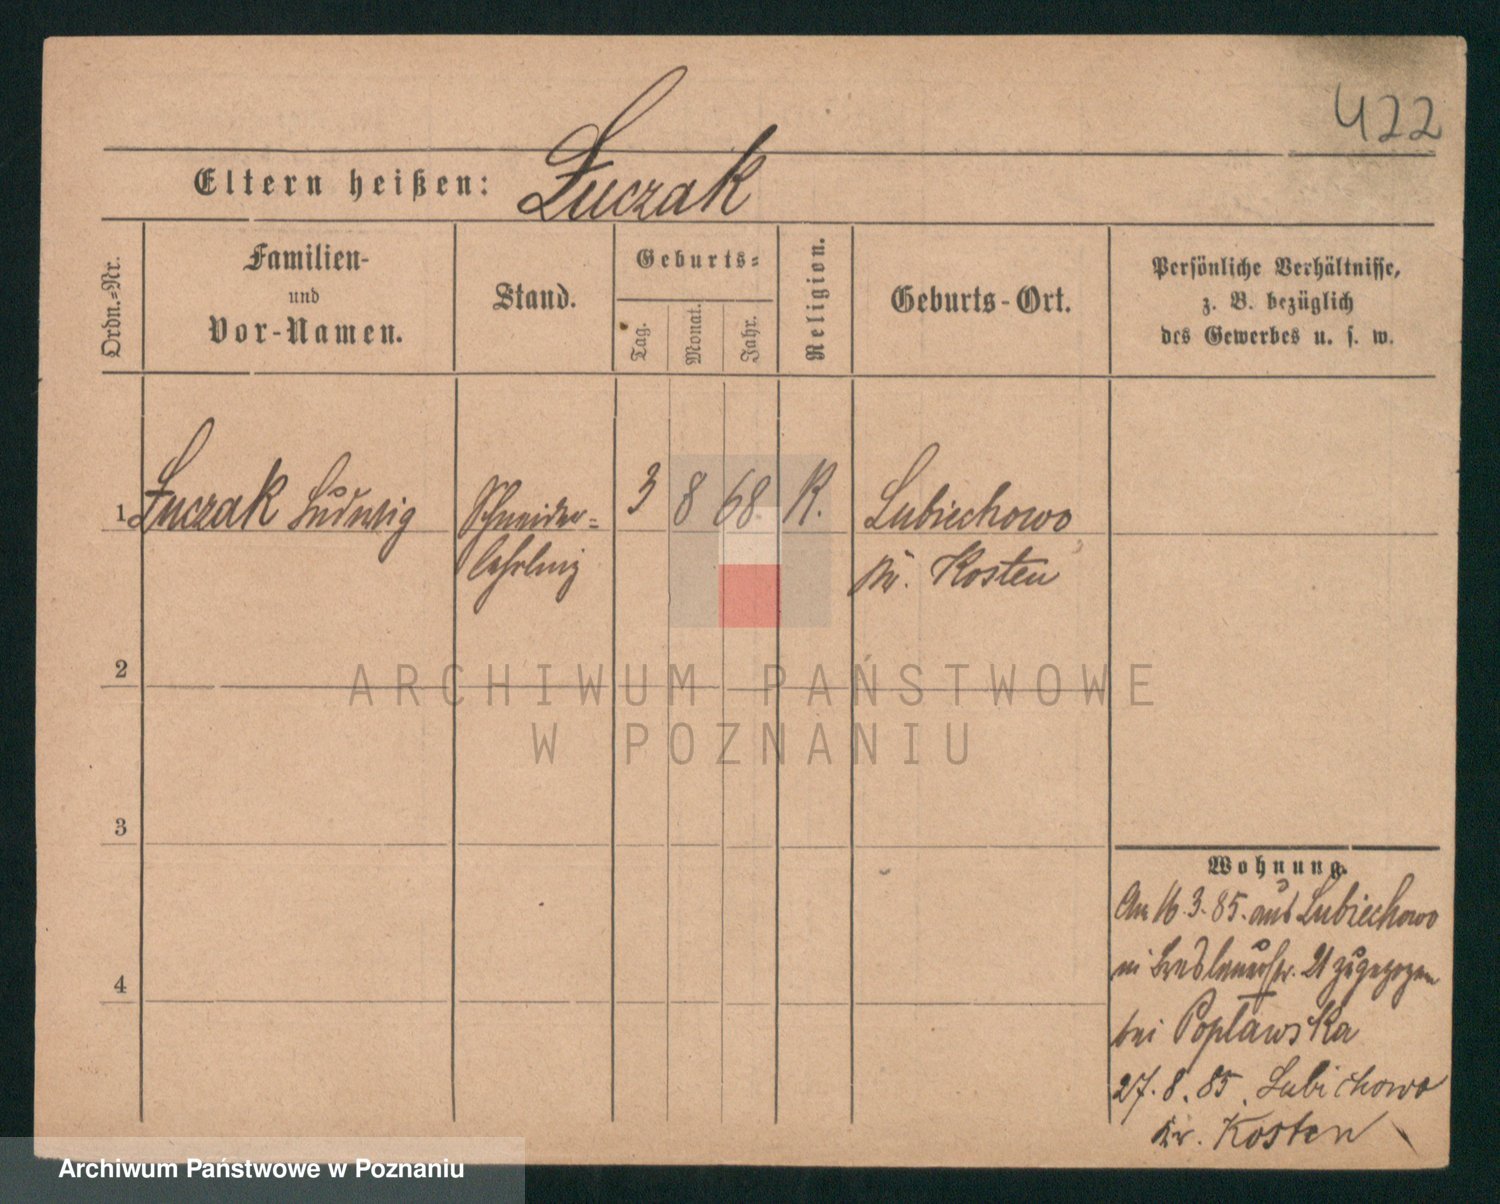 422
Eltern heißen: Łuczak
Ordn.=Nr.
Familien-
und
Vor-Namen.
Stand.
Geburts=
Tag.
Monat.
Jahr.
Religion.
Geburts-Ort.
Persönliche Verhältnisse,
z. B. bezüglich
des Gewerbes u. s. w.
1 Łuczak Ludwig Schneider= 3 8 68. K. Lubiechowo
lehrling Kr. Kosten
2
ARCHIWUM PAŃSTWOWE
W POZNANIU
3
Wohnung.
Am 16.3.85. aus Lubiechowo
in Breslauerstr. 21 zugezogen
4
bei Popławska
27.8.85. Lubichowo
Kr. Kosten
Archiwum Państwowe w Poznaniu